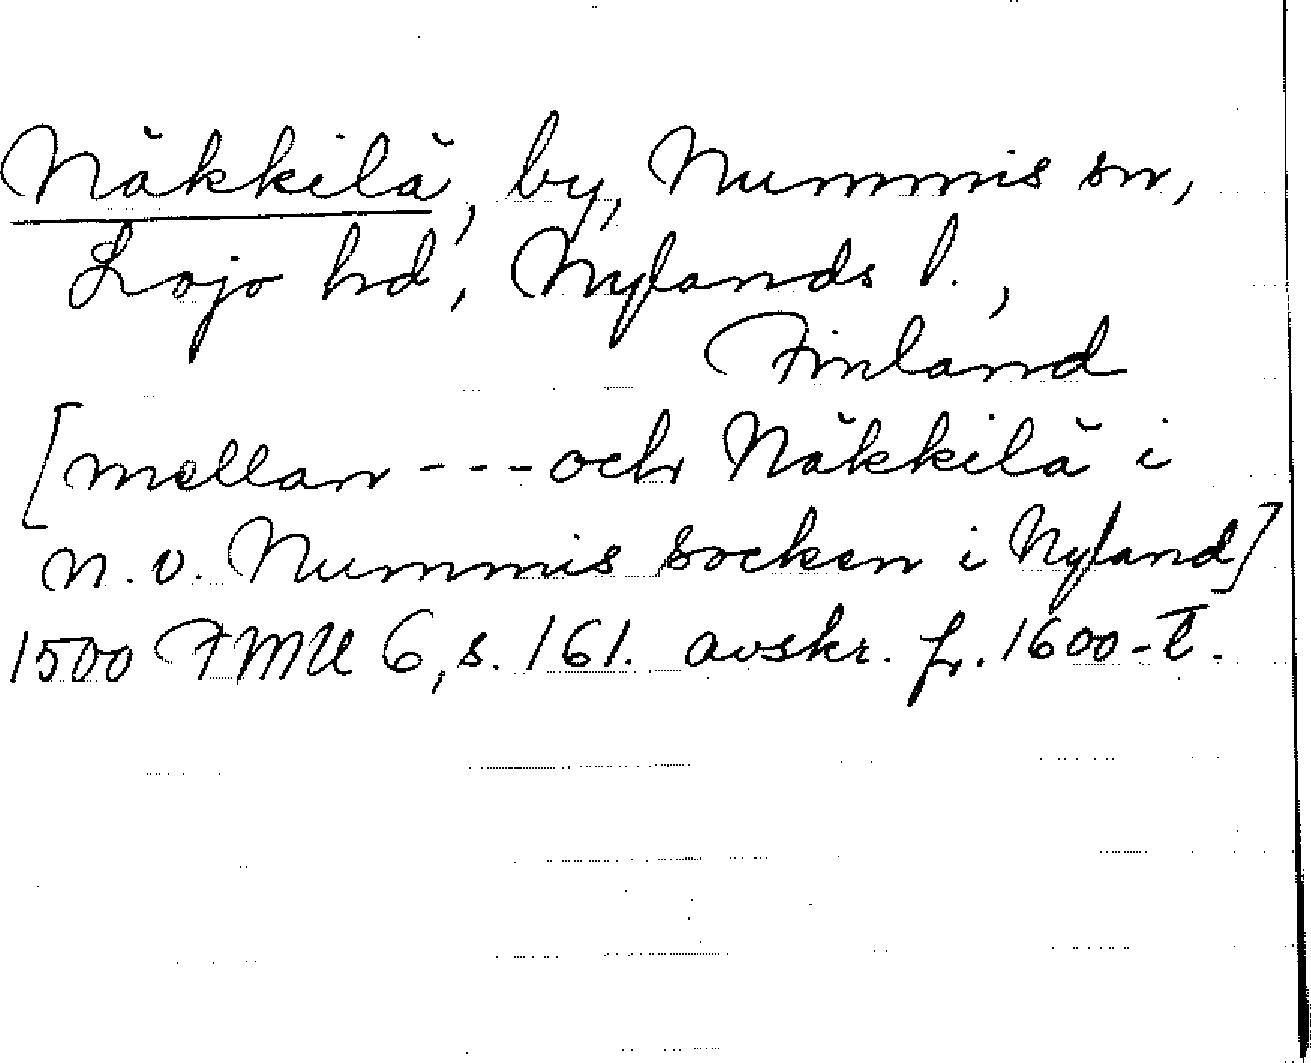 Näkkilä, by, Nummis sn,
Lojo hd, Nylands l.,
Finland
[mellan --- och Näkkilä i
n.v. Nummis socken i Nyland]
1500 FMU 6, s. 161. avskr. fr. 1600-t.